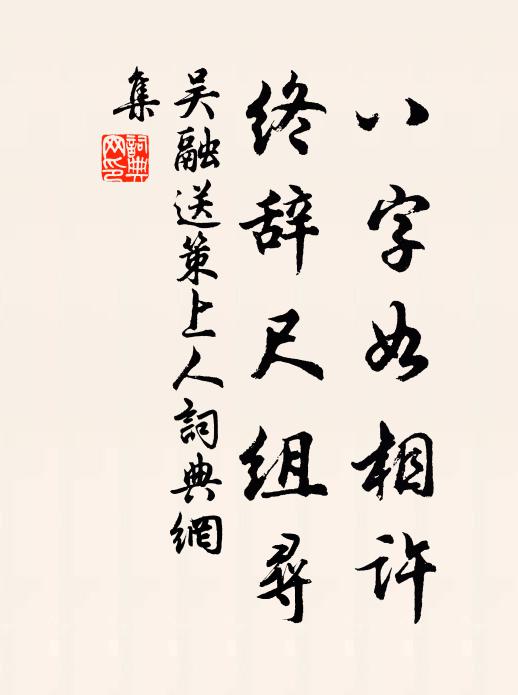 八字如相许
终辞尺组寻
吴融送策上人詞典網
集
詞典
网印